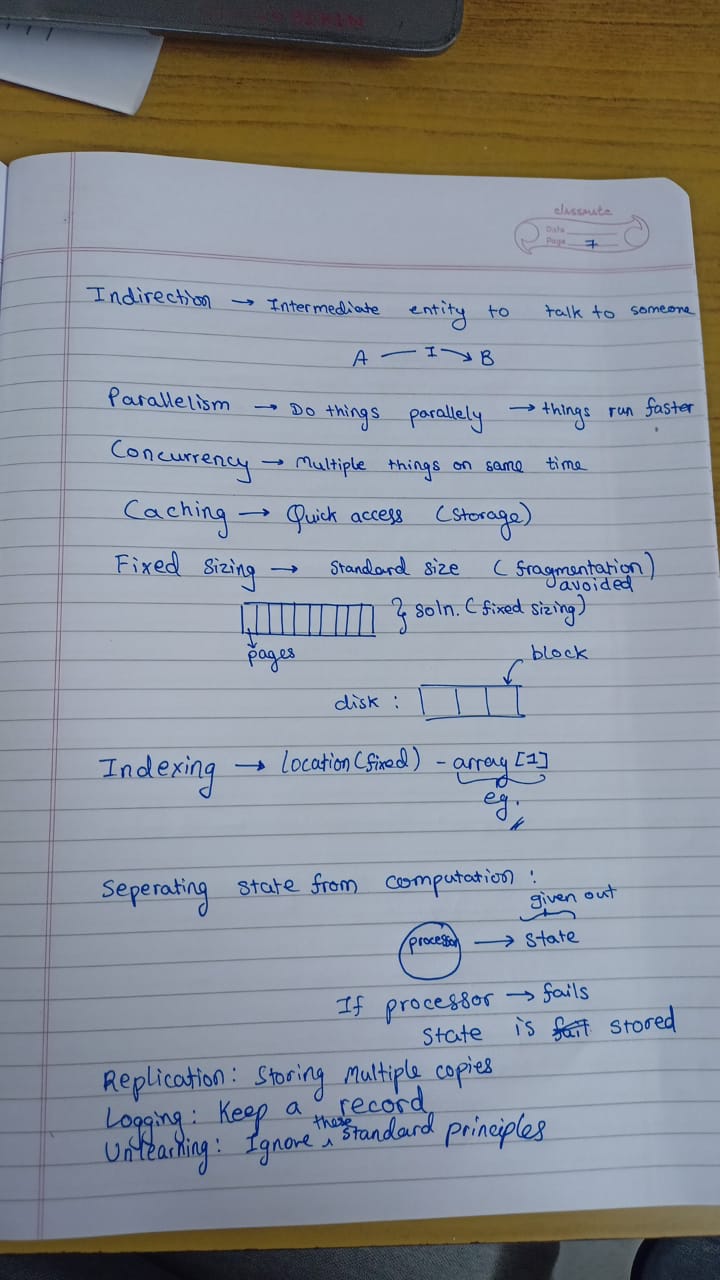 classmate
Date
Page 7
Indirection → Intermediate entity to talk to someone
A — I → B
Parallelism → Do things parallely → things run faster
Concurrency → Multiple things on same time
Caching → Quick access (storage)
Fixed sizing → standard size (fragmentation)
avoided
} soln. (fixed sizing)
pages
block
disk :
Indexing → location (fixed) - array [1]
eg.
Seperating state from computation :
given out
processor → state
If processor → fails
state is fait stored
Replication: Storing multiple copies
Logging: Keep a record
Unlearning: Ignore these standard principles